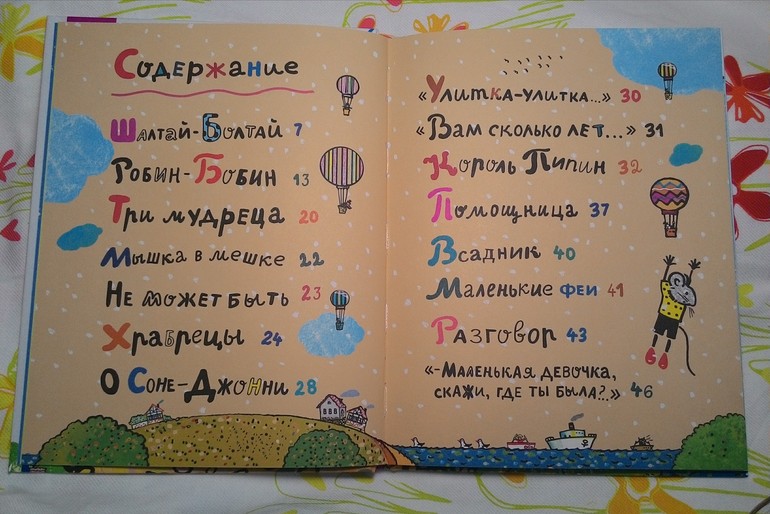 Содержание
Шалтай-Болтай 7
Робин-Бобин 13
Три мудреца 20
Мышка в мешке 22
Не может быть 23
Храбрецы 24
О Соне-Джонни 28
«Улитка-улитка...» 30
«Вам сколько лет...» 31
Король Пипин 32
Помощница 37
Всадник 40
Маленькие феи 41
Разговор 43
«-Маленькая девочка,
скажи, где ты была?..» 46